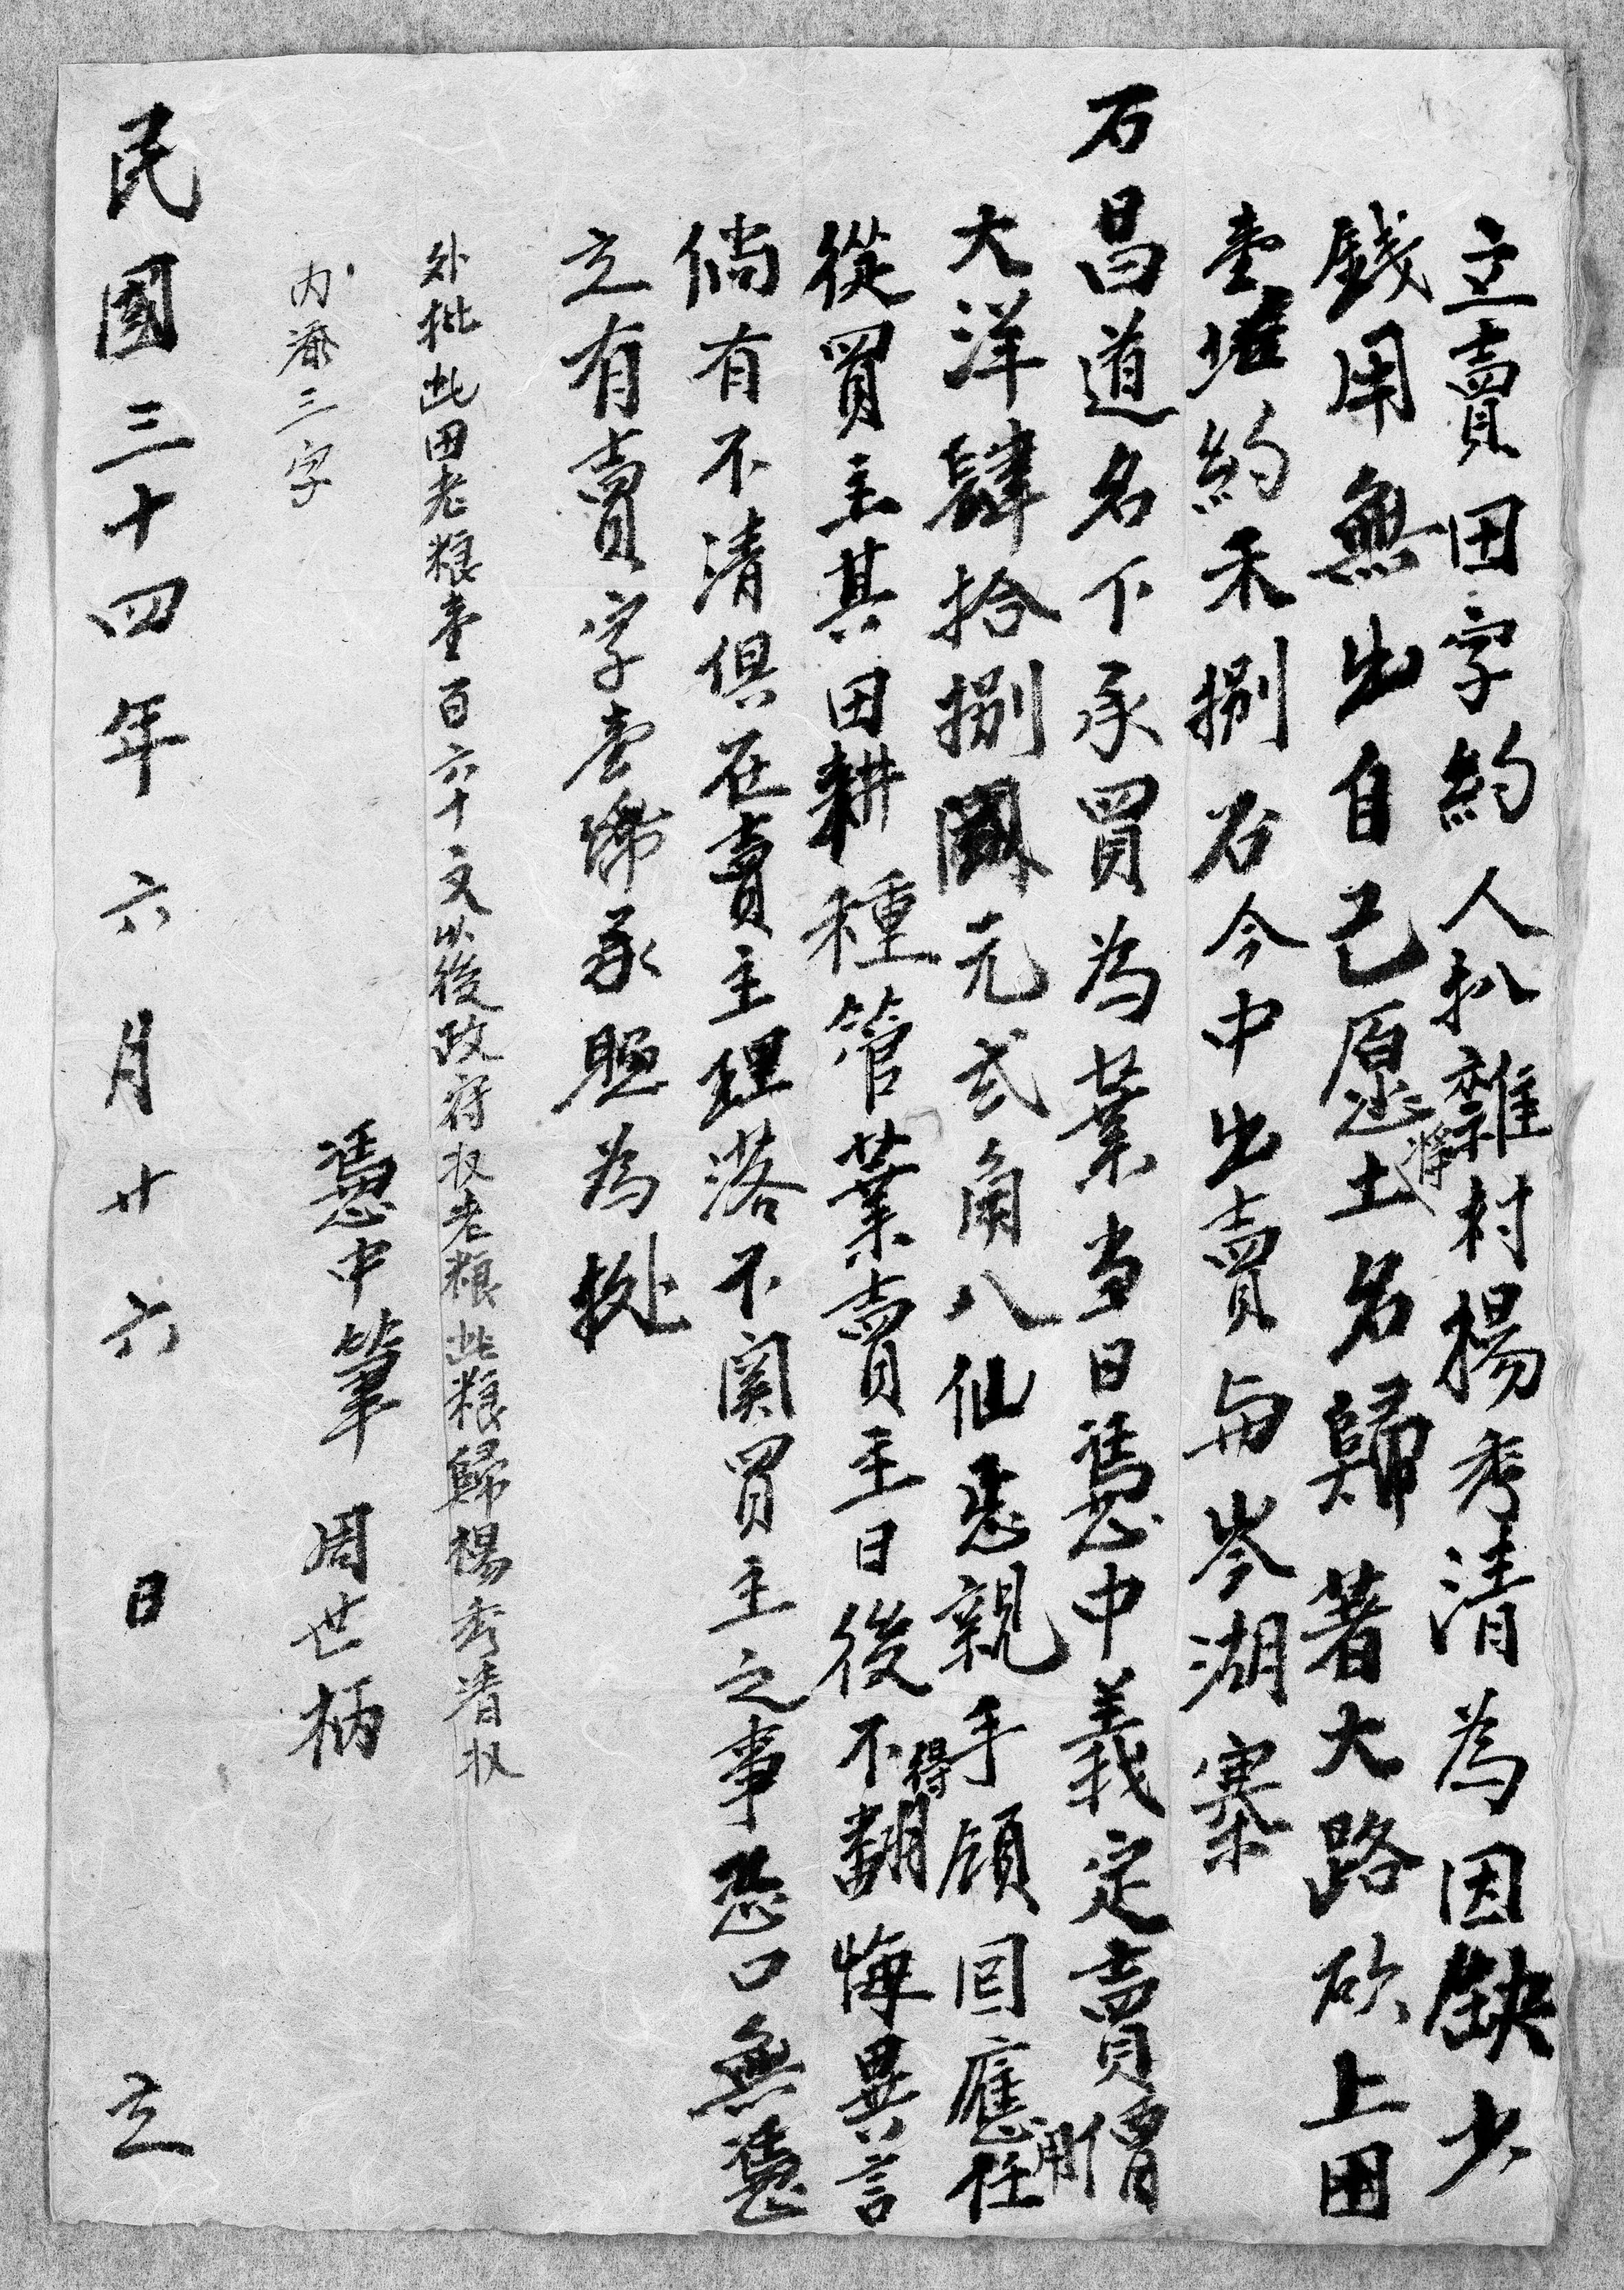 立賣田字約人扒雜村楊秀清為因缺少
錢用無出自己愿將土名歸著大路砍上田
壹坵約禾捌石今中出賣與岑湖寨
石昌道名下承買為業当日憑中義定賣價
大洋肆拾捌圓元弍角八仙恁親手領回應用任
從買主其田耕種管業賣主日後不得翻悔異言
倘有不清俱在賣主理落不関買主之事恐口無憑
立有賣字壹帋承照為據
外批此田老粮壹百六十文以後政府收老粮此粮歸楊秀清收
内添三字
憑中筆 周世柄
民國三十四年六月廿六日 立